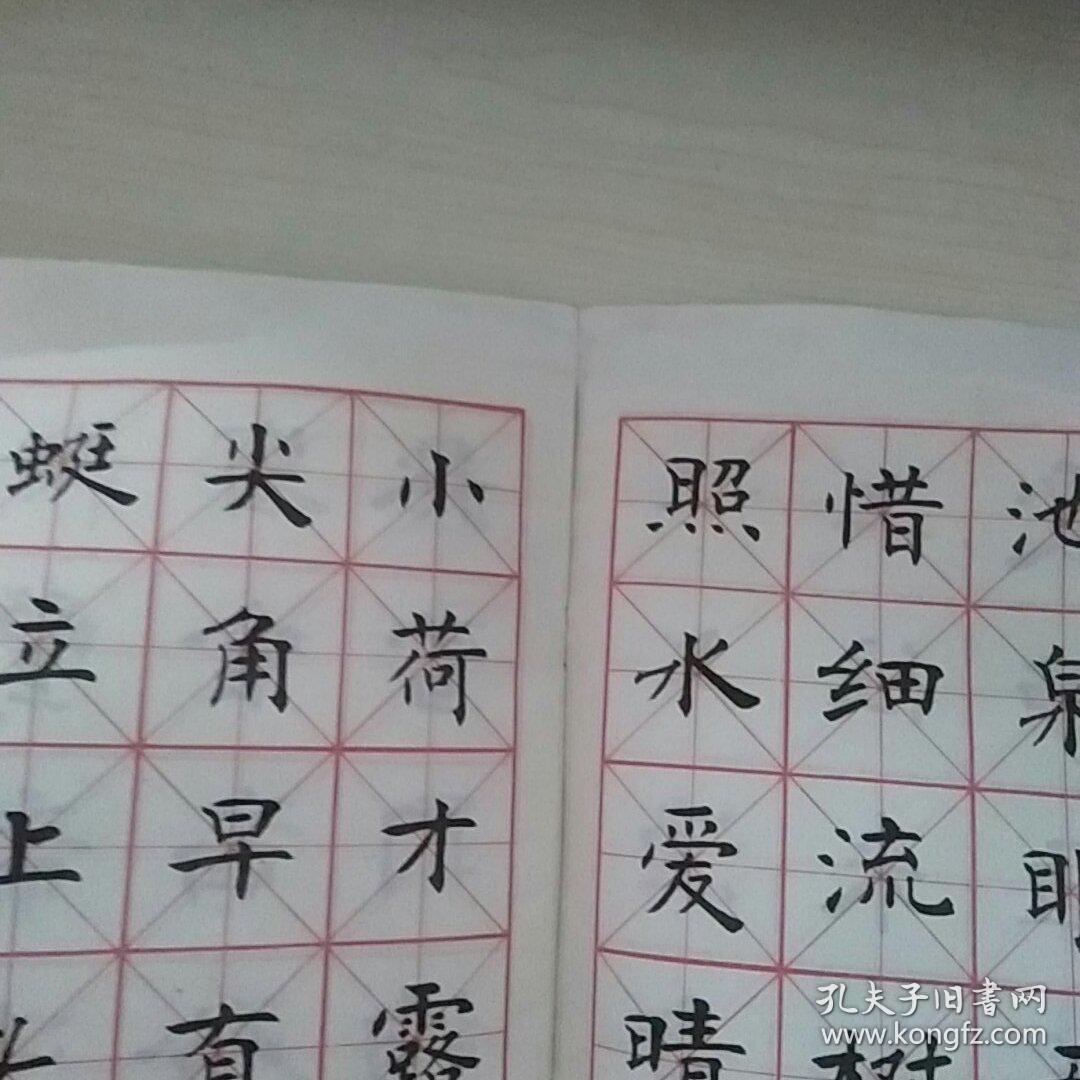 池泉眼
惜细流树
照水爱晴
小荷才露
尖角早有
蜓立上
孔夫子旧书网
www.kongfz.com